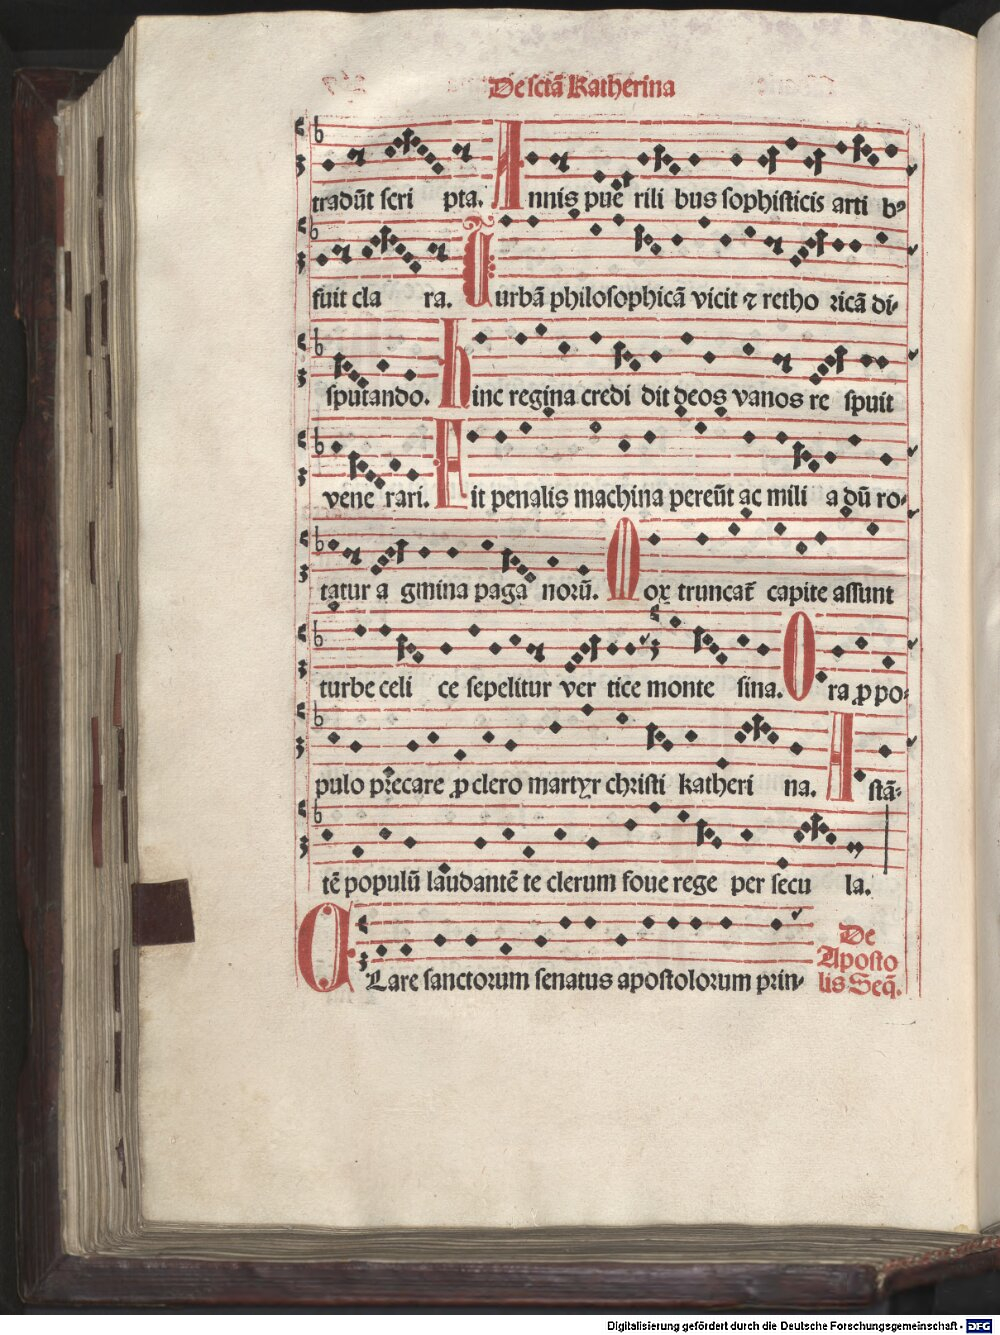 De sctā Katherina
tradūt scri pta. Annis pue rili bus sophisticis arti bꝰ
fuit cla ra. Turbā philosophicā vicit ⁊ retho ricā di-
sputando. Hinc regina credi dit deos vanos re spuit
vene rari. Fit penalis machina pereūt ac mili a dū ro-
tatur a gmina paga norū. Mox truncat̄ capite assunt
turbe celi ce sepelitur ver tice monte sina. Ora ꝓ po-
pulo precare ꝓ clero martyr christi katheri na. Istā-
tē populū laudantē te clerum foue rege per secu la.
CLare sanctorum senatus apostolorum prin-
De
Aposto
lis Seq̄.
Digitalisierung gefördert durch die Deutsche Forschungsgemeinschaft - DFG